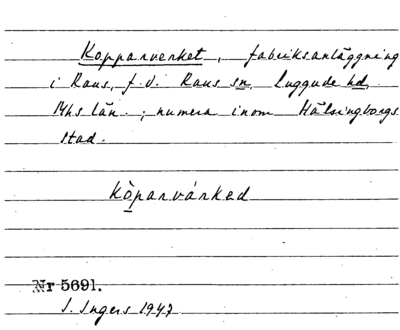 Kopparverket, fabriksanläggning
i Raus, f.d. Raus sn, Luggude hd,
Mhs län.; numera inom Hälsingborgs
stad.
kòparvárked
Nr 5691.
I. Ingers 1947